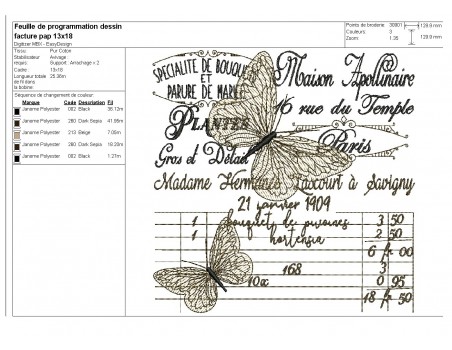 Feuille de programmation dessin
facture pap 13x18
Digitizer MBX - EasyDesign
Points de broderie: 30801
Couleurs: 3
Zoom: 1.35
129.9 mm
129.9 mm
Tissu: Pur Coton
Stabilisateur requis: Avivage : Support : Arrachage x 2
Cadre: 13x18
Longueur totale de la bobine: 25.36m
Séquence de changement de couleur:
Marque Code Description Fil
Janome Polyester 002 Black
Janome Polyester 280 Dark Sepia
Janome Polyester 213 Beige 7.05m
Janome Polyester 280 Dark Sepia
Janome Polyester 002 Black 1.21m
SPECIALITE DE BOUQUETS
ET
PARURE DE
PLANTES
Gros et Détail
Maison Apollinaire
16 rue du Temple
Paris
Madame à Savigny
21 janvier 1909
1 bouquets de pivoines 3 50
1 hortensia 2 50
6 fr 00
168 3
10x 0 95
18 fr 50